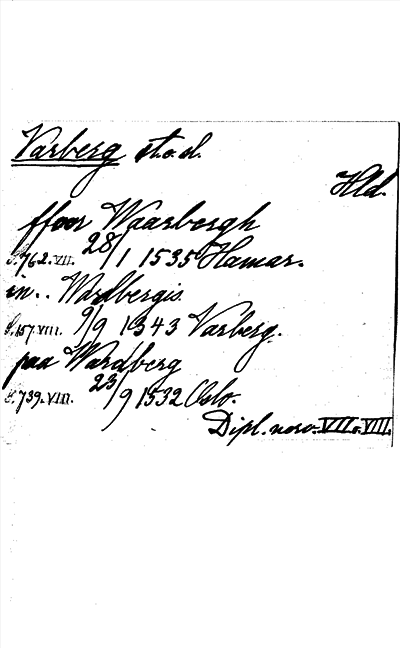 Varberg st.o.d.
Hld.
ffoor Waarborgh
S. 762. VII. 28/1 1535 Hamar.
in.. Wardbergis
S. 157. VIII. 9/9 1343 Varberg.
paa Wardberg
S. 739. VIII. 23/9 1532 Oslo.
Dipl. norv. VII o. VIII.